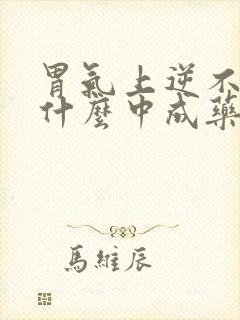 胃氣上逆不
什麼中成藥
馬維辰